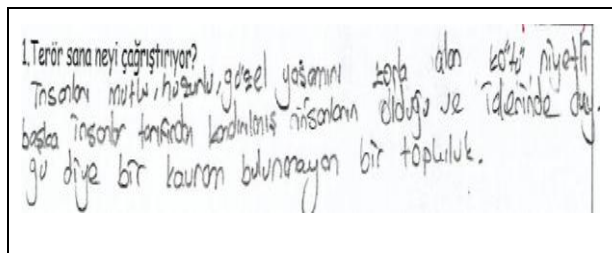 1. Terör sana neyi çağrıştırıyor?
İnsanları mutlu, huzurlu, güzel yaşamını zorla alan kötü niyetli
başka insanlar tarafından kandırılmış insanların olduğu ve içlerinde duy-
gu diye bir kavram bulunmayan bir topluluk.